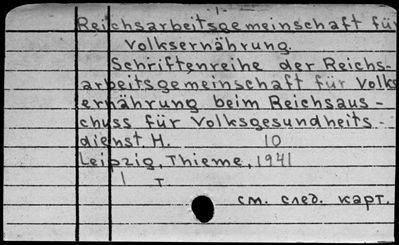 -1-
Reichsarbeitsgemeinschaft für
Volksernährung.
Schriftenreihe der Reichs-
arbeitsgemeinschaft für Volks
ernährung beim Reichsaus-
schuss für Volksgesundheits-
dienst. H. 10
Leipzig, Thieme, 1941
1 т.
см. след. карт.